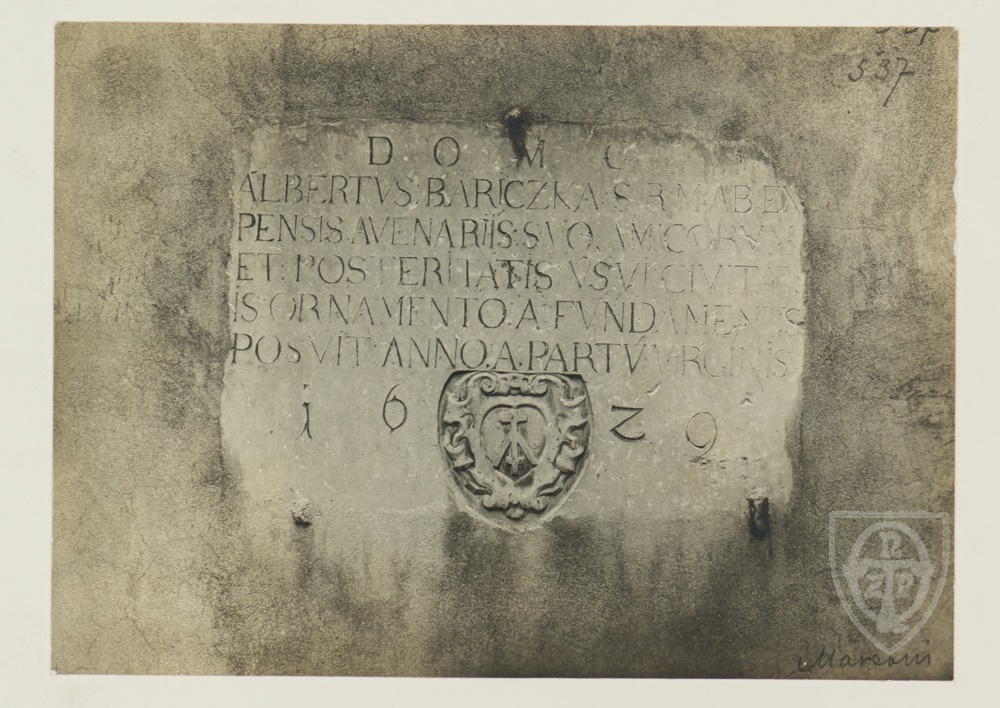 537
D O M C
ALBERTVS:BARICZKA·S·R·M·AB·EX
PENSIS·AVENARIIS:SVO·AMICORVM
ET:POSTERITATIS·VSVI·CIVITAT
IS·ORNAMENTO·A·FVNDAMENTIS
POSVIT·ANNO·A·PARTV·VIRGINIS
1 6 2 9
Marconi